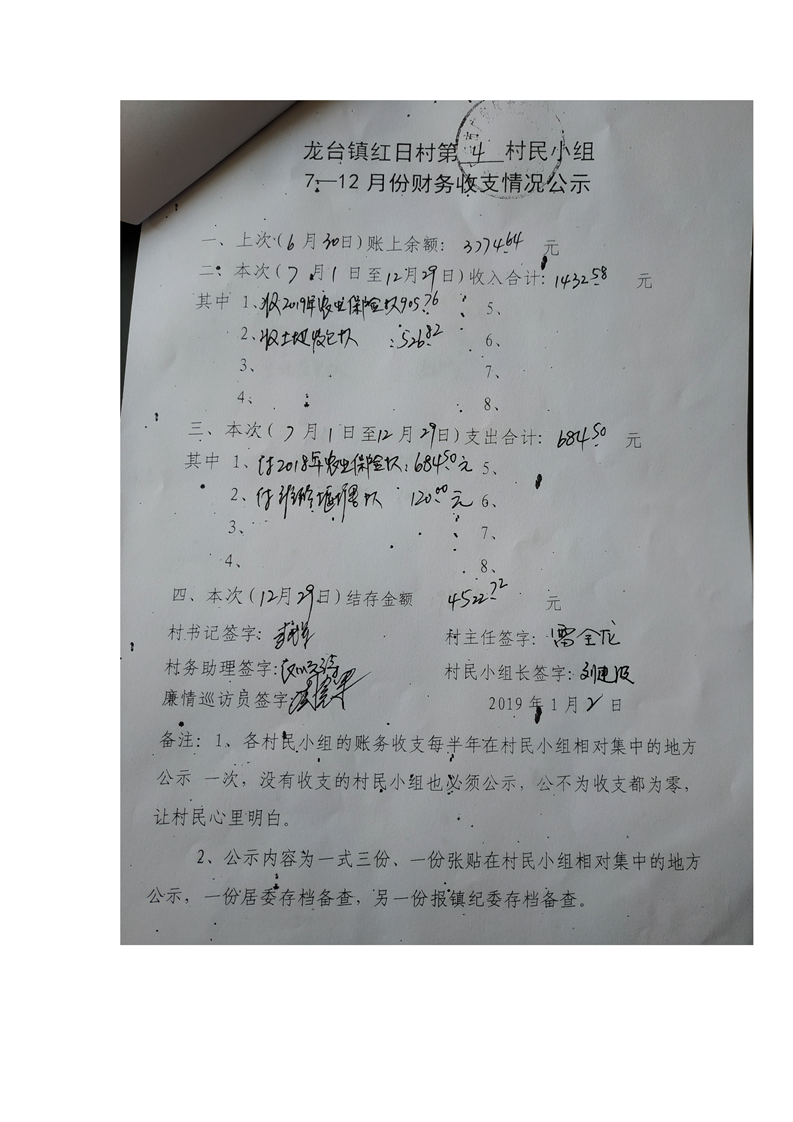 龙台镇红日村第 4 村民小组
7—12月份财务收支情况公示
一、上次(6月30日)账上余额: 3774.64 元
二、本次(7月1日至12月29日)收入合计: 1432.58 元
其中 1、收2019年农业保险款905.76 5、
2、收土地发包款 :526.82 6、
3、 7、
4、 8、
三、本次(7月1日至12月29日)支出合计: 684.50 元
其中 1、付2018年农业保险款:684.50元 5、
2、付维修堰塘款 120.00元 6、
3、 7、
4、 8、
四、本次(12月29日)结存金额 4522.72 元
村书记签字: 村主任签字: 雷全龙
村务助理签字: 村民小组长签字:
廉情巡访员签字: 2019年1月2日
备注:1、各村民小组的账务收支每半年在村民小组相对集中的地方
公示 一次,没有收支的村民小组也必须公示,公不为收支都为零,
让村民心里明白。
2、公示内容为一式三份、一份张贴在村民小组相对集中的地方
公示,一份居委存档备查,另一份报镇纪委存档备查。